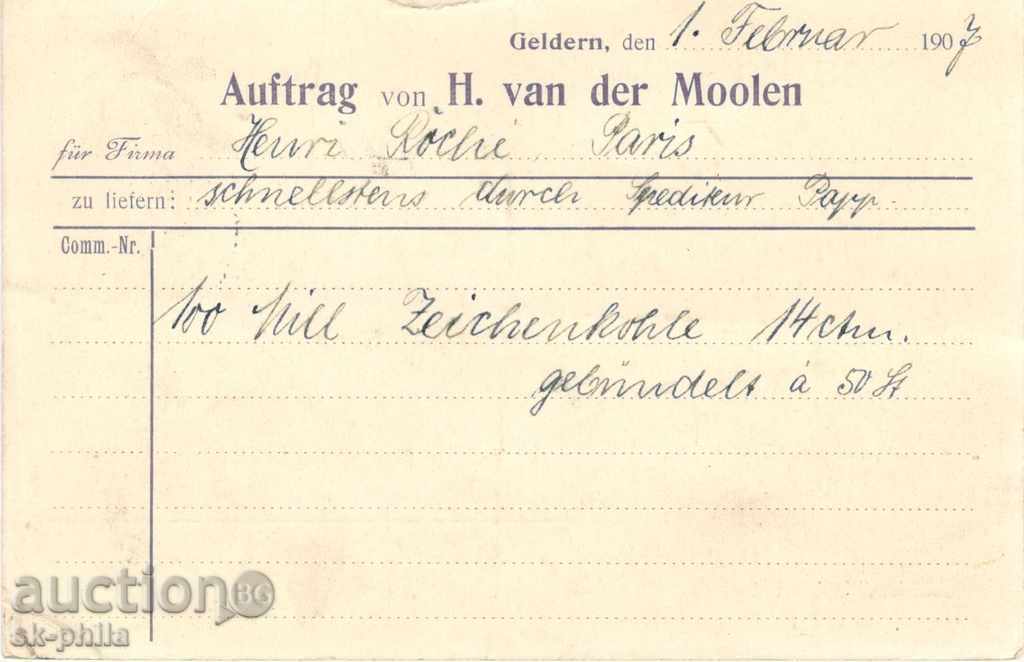 Geldern, den 1. Februar 1907
Auftrag von H. van der Moolen
für Firma Henri Roché, Paris
zu liefern: schnellstens durch Spediteur Papp.
Comm.-Nr.
100 Mill Zeichenkohle 14 ctm.
gebündelt à 50 St
auctionBG
sk-phila